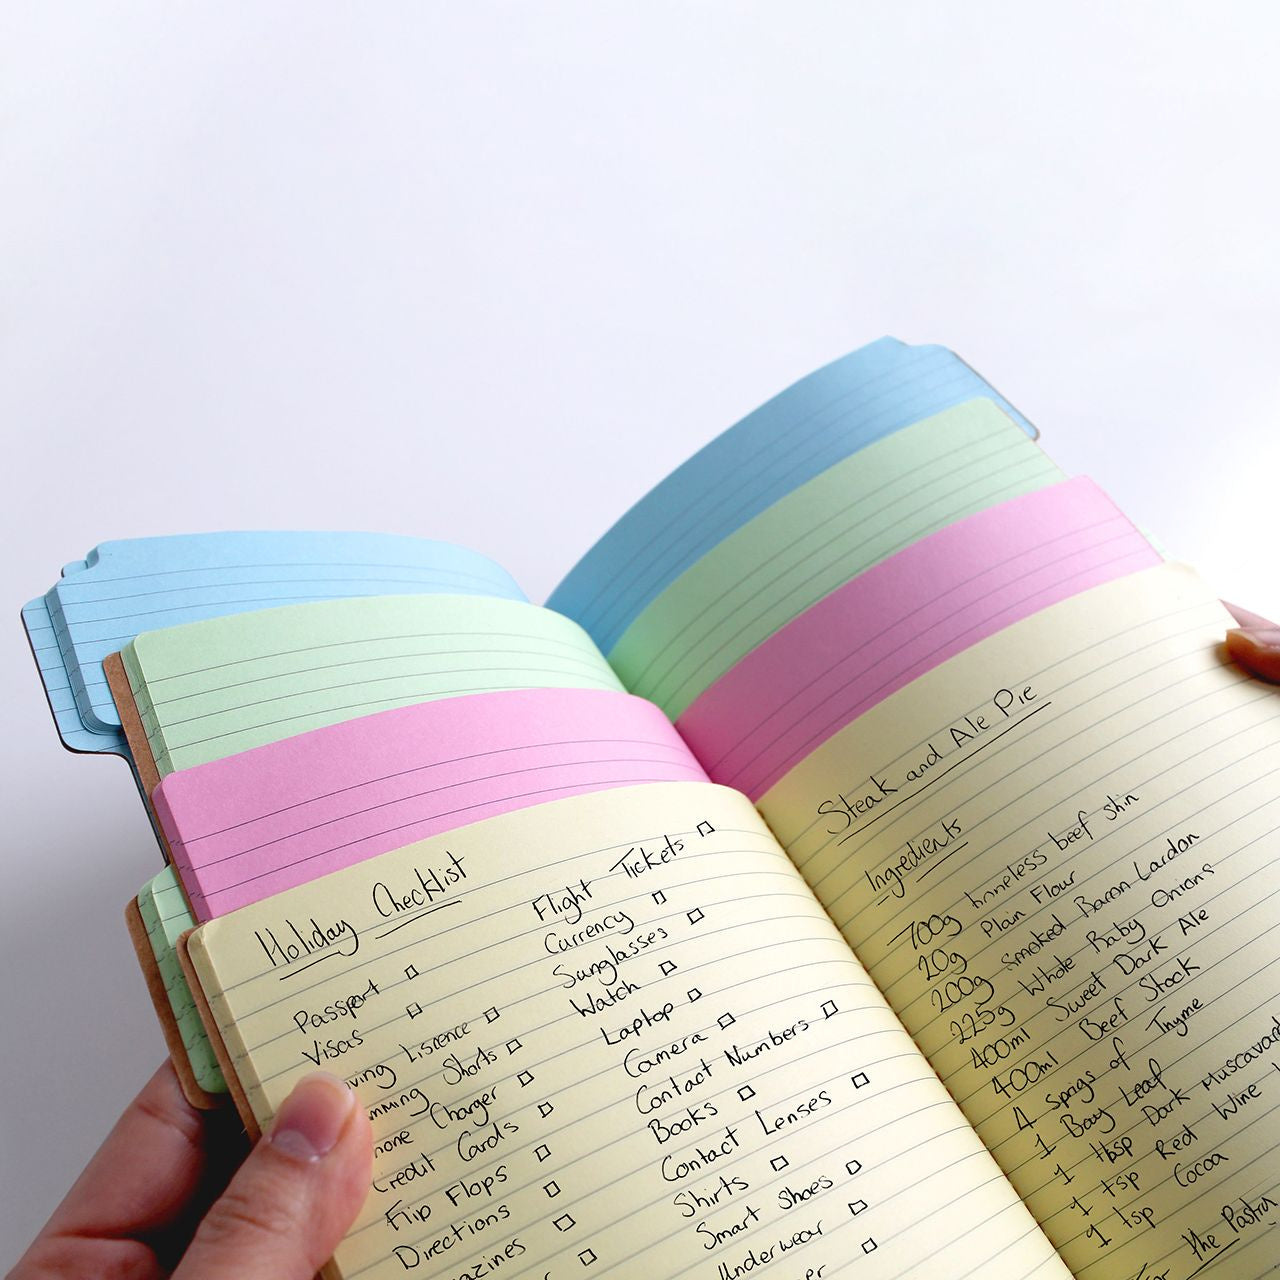 Holiday Checklist
Passport
Visas
iving Lisrence
mming Shorts
hone Charger
Credit Cards
Flip Flops
Directions
azines
Flight Tickets
Currency
Sunglasses
Watch
Laptop
Camera
Contact Numbers
Books
Contact Lenses
Shirts
Smart Shoes
Underwear
per
Steak and Ale Pie
Ingredients
700g boneless beef shin
20g Plain Flour
200g Smoked Bacon Lardon
225g Whole Baby Onions
400ml Sweet Dark Ale
400ml Beef Stock
4 springs of Thyme
1 Bay Leaf
1 tbsp Dark Muscavar
1 tsp Red Wine
1 tsp Cocoa
For the Pastry